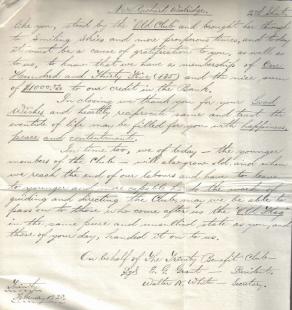 like you, stood by the "Old Club" and brought her through
to smiling skies and more prosperous times, and today
it must be a cause of gratification to you, as well as
to us, to know that we have a membership of One
Hundred and Thirty Five (135) and the nice sum
of $1000.00 to our credit in the Bank.
In closing we thank you for your Good
Wishes and heartily reciprocate same and trust the
winter of life will be filled for you with happiness,
peace and contentment.
In time too, we of today - the younger
members of the Club - will also grow old and when
we reach the end of our labours and have to leave
to younger and more capable hands the work of
guiding and directing the Club, may we be able to
pass on to those who come after us the "Old Flag"
in the same pure and unsullied state as you, and
those of your day, handed it on to us.
On behalf of The Trinity Benefit Club
Sgd E. G. Grant - President
Walter N. White - Secretary.
Trinity
February